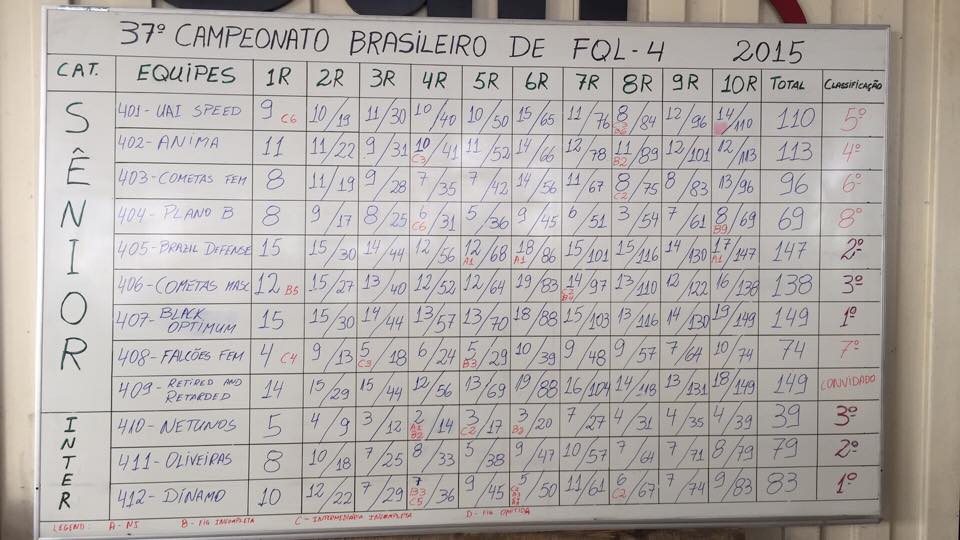 37º CAMPEONATO BRASILEIRO DE FQL-4 2015
CAT. EQUIPES 1R 2R 3R 4R 5R 6R 7R 8R 9R 10R TOTAL CLASSIFICAÇÃO
SÊNIOR
401- UAI SPEED 9 C6 10/19 11/30 10/40 10/50 15/65 11/76 8/84 12/96 14/110 110 5º
402- ANIMA 11 11/22 9/31 10/41 C3 11/52 14/66 12/78 11/89 B2 12/101 12/113 113 4º
403- COMETAS FEM 8 11/19 9/28 7/35 7/42 14/56 11/67 8/75 C2 8/83 13/96 96 6º
404- PLANO B 8 9/17 8/25 6/31 C6 5/36 9/45 6/51 3/54 7/61 8/69 B9 69 8º
405- BRAZIL DEFENSE 15 15/30 14/44 12/56 12/68 A1 18/86 A1 15/101 15/116 14/130 17/147 A1 147 2º
406- COMETAS MASC 12 B5 15/27 13/40 12/52 12/64 19/83 14/97 13/110 12/122 16/138 138 3º
407- BLACK OPTIMUM 15 15/30 14/44 13/57 13/70 18/88 15/103 13/116 14/130 19/149 149 1º
408- FALCÕES FEM 4 C4 9/13 5/18 C3 6/24 5/29 B3 10/39 9/48 9/57 7/64 10/74 74 7º
409- RETIRED AND RETARDED 14 15/29 15/44 12/56 13/69 19/88 16/104 14/118 13/131 18/149 149 CONVIDADO
INTER
410- NETUNOS 5 4/9 3/12 2/14 A1 B2 3/17 C2 3/20 B2 7/27 4/31 4/35 4/39 39 3º
411- OLIVEIRAS 8 10/18 7/25 8/33 5/38 9/47 10/57 7/64 7/71 8/79 79 2º
412- DÍNAMO 10 12/22 7/29 7/36 B3 C5 9/45 5/50 11/61 6/67 C2 7/74 9/83 83 1º
LEGEND: A - NI B - FIG INCOMPLETA C - INTERMEDIÁRIA INCOMPLETA D - FIG OMITIDA